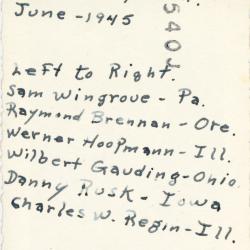 June - 1945
5401
Left to Right.
Sam Wingrove - Pa.
Raymond Brennan - Ore.
Werner Hoopmann - Ill.
Wilbert Gauding - Ohio
Danny Rusk - Iowa
Charles W. Regin - Ill.